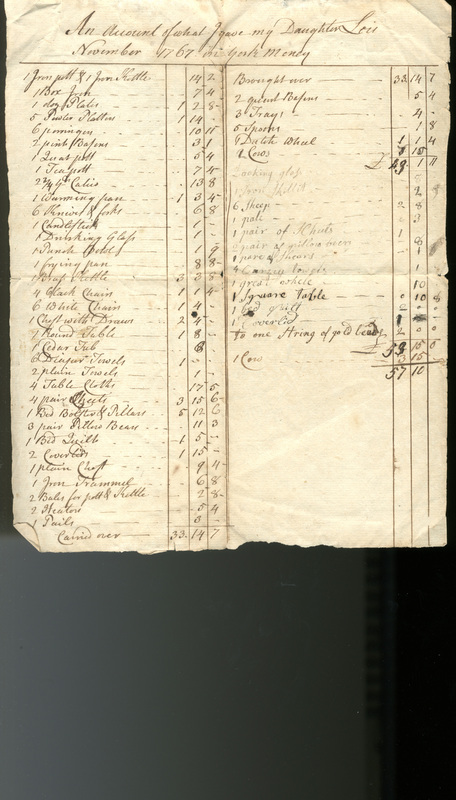 An Account of what I gave my Daughter Lois
November 1767 in York Money
1 Iron pott & 1 Iron Kettle 14 2
1 Box Iron 7 4
1 doz Plates 1 2 8
5 Pewter Platters 1 14
6 porringers 10 11
2 pint Basons 3 1
1 Quart pott 5 4
1 Teapott 7 4
Calico 13 8
1 Warming pan 1 3 4
6 Knives & forks 6 8
1 Candlestick 1
1 Drinking Glass 1
1 Punch Bowl 1 9
1 frying pan 8 8
1 Brass Kettle 3 3 8
6 Black Chairs 1 1 4
6 White Chairs 1 4
1 Chest with Draws 2 4
1 Round Table 1 8
1 Cedar Tub 8
3 Diaper Towels 1
2 plain Towels 1
4 Table Cloths 17 5
4 pair Sheets 3 15 6
1 Bed Bolster & Pillars 5 12 6
3 pair Pillow Bears 11 3
1 Bed Quilt 1 5
2 Coverlids 1 15
1 plain Chest 9 4
1 Iron Trammel 6 8
2 Bales for pott & Kettle 2 8
2 Heators 5 4
1 Pails 3
Carried over 33 14 7
Brought over 33 14 7
2 quart Basons 5 4
3 Trays 4
5 Spoons 1 8
1 Dutch Wheel 1 1 4
2 Cows
£ 43 1 11
Looking glass
1 Iron Skillet
6 Sheep 2 8
1 pale
1 pair of
1 pair of
1 great wheele 10
1 Square table 0 10 8
1 Bed Quilt
1 Coverlid
To one String of gold beads
£ 53 15 0
1 Cow 3 15
57 10